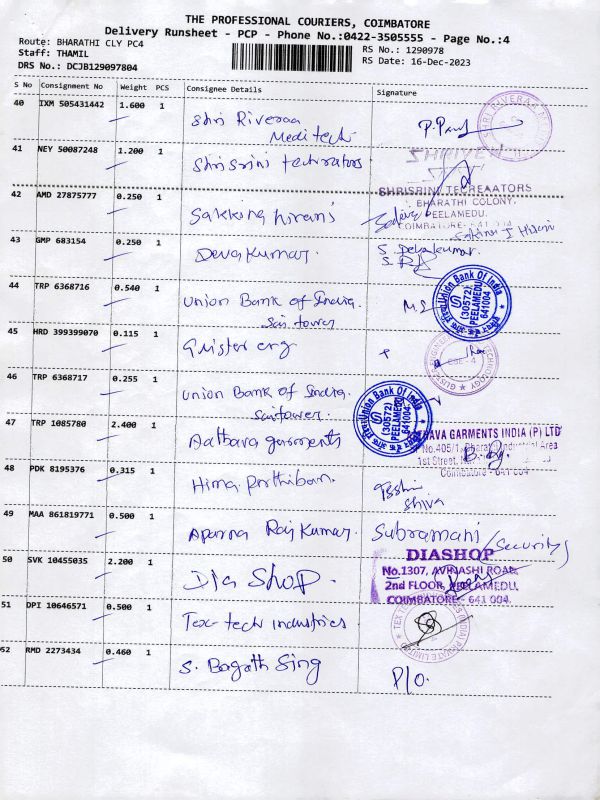 THE PROFESSIONAL COURIERS, COIMBATORE
Delivery Runsheet - PCP - Phone No.:0422-3505555 - Page No.:4
Route: BHARATHI CLY PC4
RS No.: 1290978
Staff: THAMIL
RS Date: 16-Dec-2023
DRS No.: DCJB129097804
S No Consignment No Weight PCS Consignee Details Signature
40 IXM 505431442 1.600 1 Shri Riveraa
Meditech
41 NEY 50087248 1.200 1 Shrisrini techrators
SHRISRINI TECREAATORS
BHARATHI COLONY,
PEELAMEDU,
COIMBATORE-
42 AMD 27875777 0.250 1 Sakkina hirani
43 GMP 683154 0.250 1 Devakumar. S. Devakumar.
44 TRP 6368716 0.540 1 Union Bank of India. M.S
Sai tower
Union Bank Of India
(30572)
PEELAMEDU
641004
45 HRD 399399070 0.115 1 Glister erg
46 TRP 6368717 0.255 1 Union Bank of India.
Saitower.
Union Bank Of India
(30572)
PEELAMEDU
641004
47 TRP 1085780 2.400 1 Aathava garments
RAVA GARMENTS INDIA (P) LTD
No.405/1, Bharathi Industrial Area
1st Street,
Coimbatore - 641 004
48 PDK 8195376 0.315 1 Hima Parthiban.
Shiva
49 MAA 861819771 0.500 1 Aparna Raj Kumar. Subramani / Security
50 SVK 10455035 2.200 1 Dia Shop.
DIASHOP
No.1307, AVINASHI ROAD,
2nd FLOOR, PEELAMEDU,
COIMBATORE - 641 004.
51 DPI 10646571 0.500 1 Tex-tech industries
52 RMD 2273434 0.460 1 S. Bagath Sing P/O.